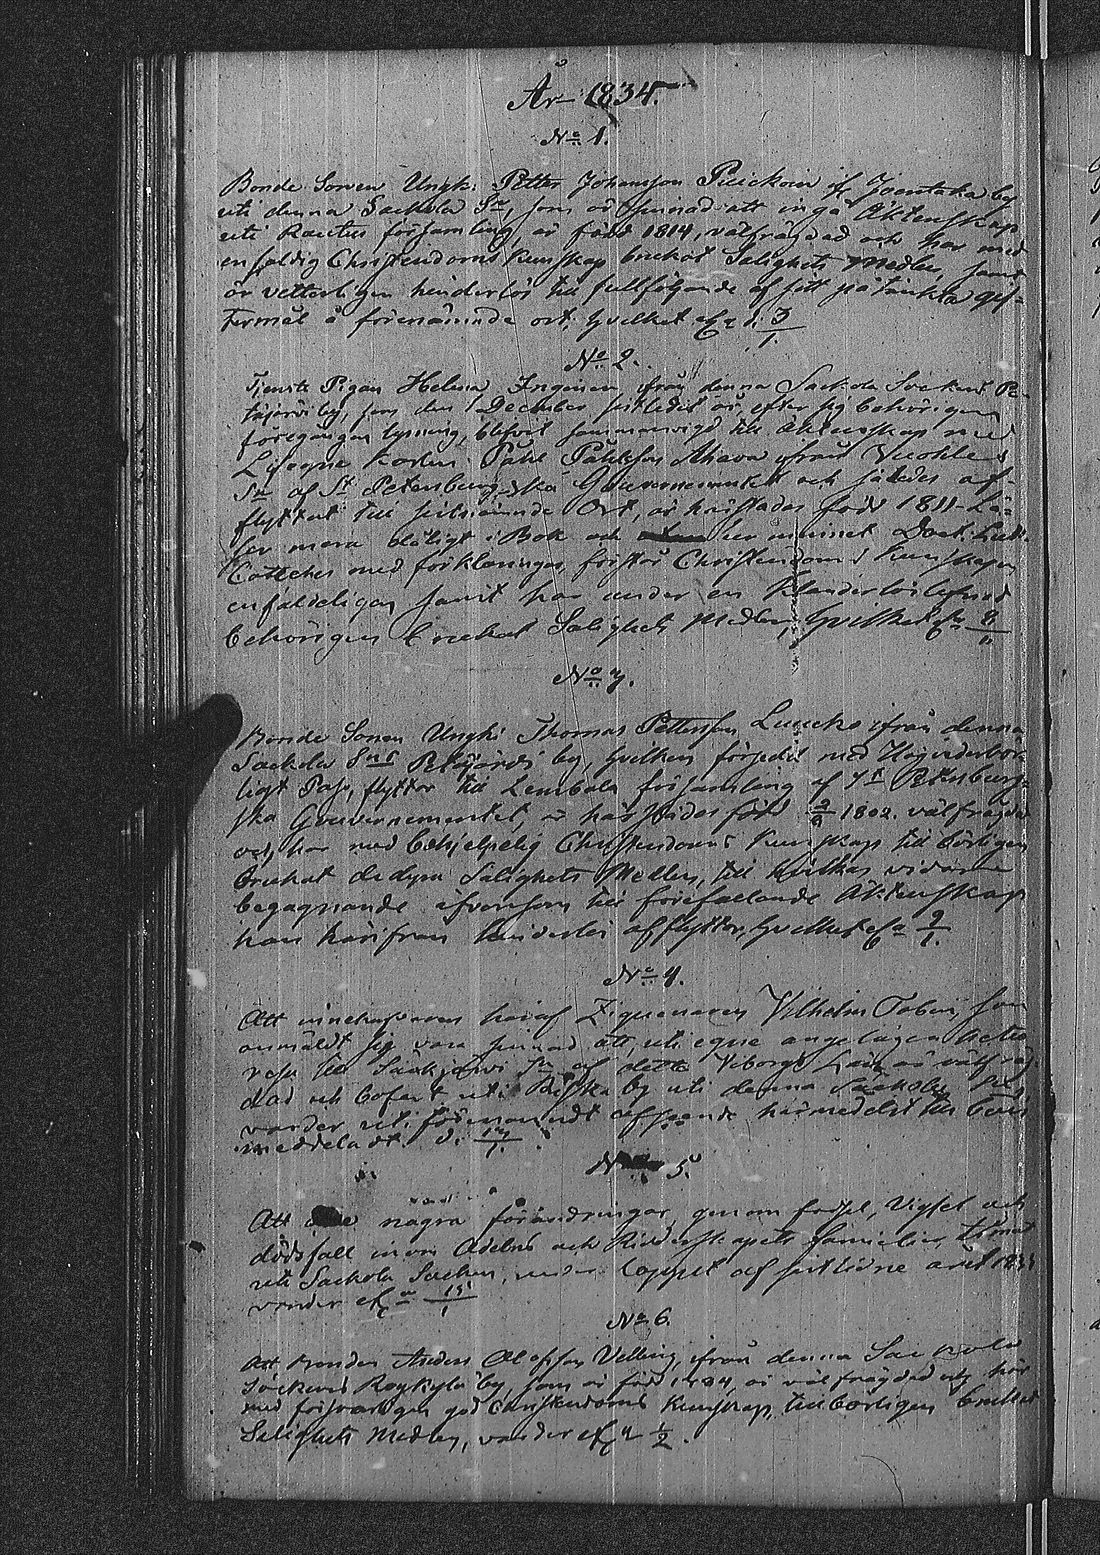 År 1834.
No 1.
Bonde Sonen Ungk. Petter Johansson Puickoin if Joentaka by
uti denna Sackola Sn, som är sinnad att ingå Äktenskap
uti Rautus församling, är född 1814, välfrägdad och har med
enfaldig Christendoms kunskap brukat Salighets Medlen, samt
är vetterligen hinderlös till fullföljande af sitt påtänkta gif-
termål å förenämnde ort; Hvilket 3/1.
No 2.
Tjenste Pigan Helena Ingenen ifrån denna Sackola Sockens Pe-
täjärvi by, som den 1 December sistledit år, efter sig behörigen
föregången lysning, blifvit sammanvigd till Äktenskap med
Lifegne Karlen Påhl Påhlsson Ahava ifrån Vuohle
Sn af St Petersburgska Gouvernementet och således af-
flyttat till sistnämnde Ort, är härstädes född 1811. Lä-
ser mera blåligt i Bok och ur minnet Doct. Luth.
Cateches med förklaringar, förstår Christendoms kunskapen
enfaldeligen samt har under en klanderlös lefnad
behörigen brukat Salighets Medlen, Hvilket 8/
No 3.
Bonde Sonen Ungk. Thomas Pettersson Luucke ifrån denna
Sackola Sns Petäjärvi by, hvilken försedd med
ligt Pass, flyttar till Lembala församling af St Petersburg-
ska Gouvernementet, är härstädes född 1802. välfrägdad
och, har med behjelpelig Christendoms kunskap tillbörligen
brukat de dyra Salighets Medlen, till hvilkas vidare
begagnande äfvensom till förefallande Äktenskap
han härifrån hinderlös afflyttar, Hvilket 9/1.
No 4.
Att innehafvaren häraf Zigenaren Vilhelm Tobin, som
anmäldt sig vara sinnad att, uti egne angelägenheter
resa till Sackjärvi Sn af detta Viborgs Län är välfräg-
dad och bofast uti by uti denna Sackola Sn,
varder uti förenämndt afseende härmedelst till bevis
meddeladt. d. /1.
No 5.
Att några förändringar, genom födsel, Vigsel och
dödsfall inom Adelns och Ridderskapets familier, timat
uti Sackola Socken, under loppet af sistlidne året 1833
varder 15/1
No 6.
Att Bonden Anders Olofsson Velling, ifrån denna Sackola
Sockens Röykylä by, som är född, är välfrägdad och har
med försvarligen god Christendoms kunskap, tillbörligen brukat
Salighets Medlen, varder 1/2.